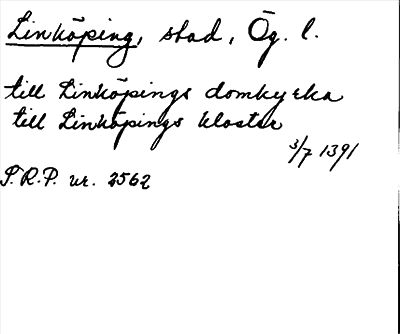 Linköping, stad, Ög. l.
till Linköpings domkyrka
till Linköpings kloster
3/7 1391
S.R.P. nr. 2562